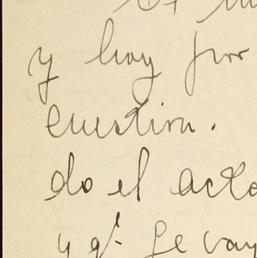 y hay por
cuestion.
do el acto
y qe se vay